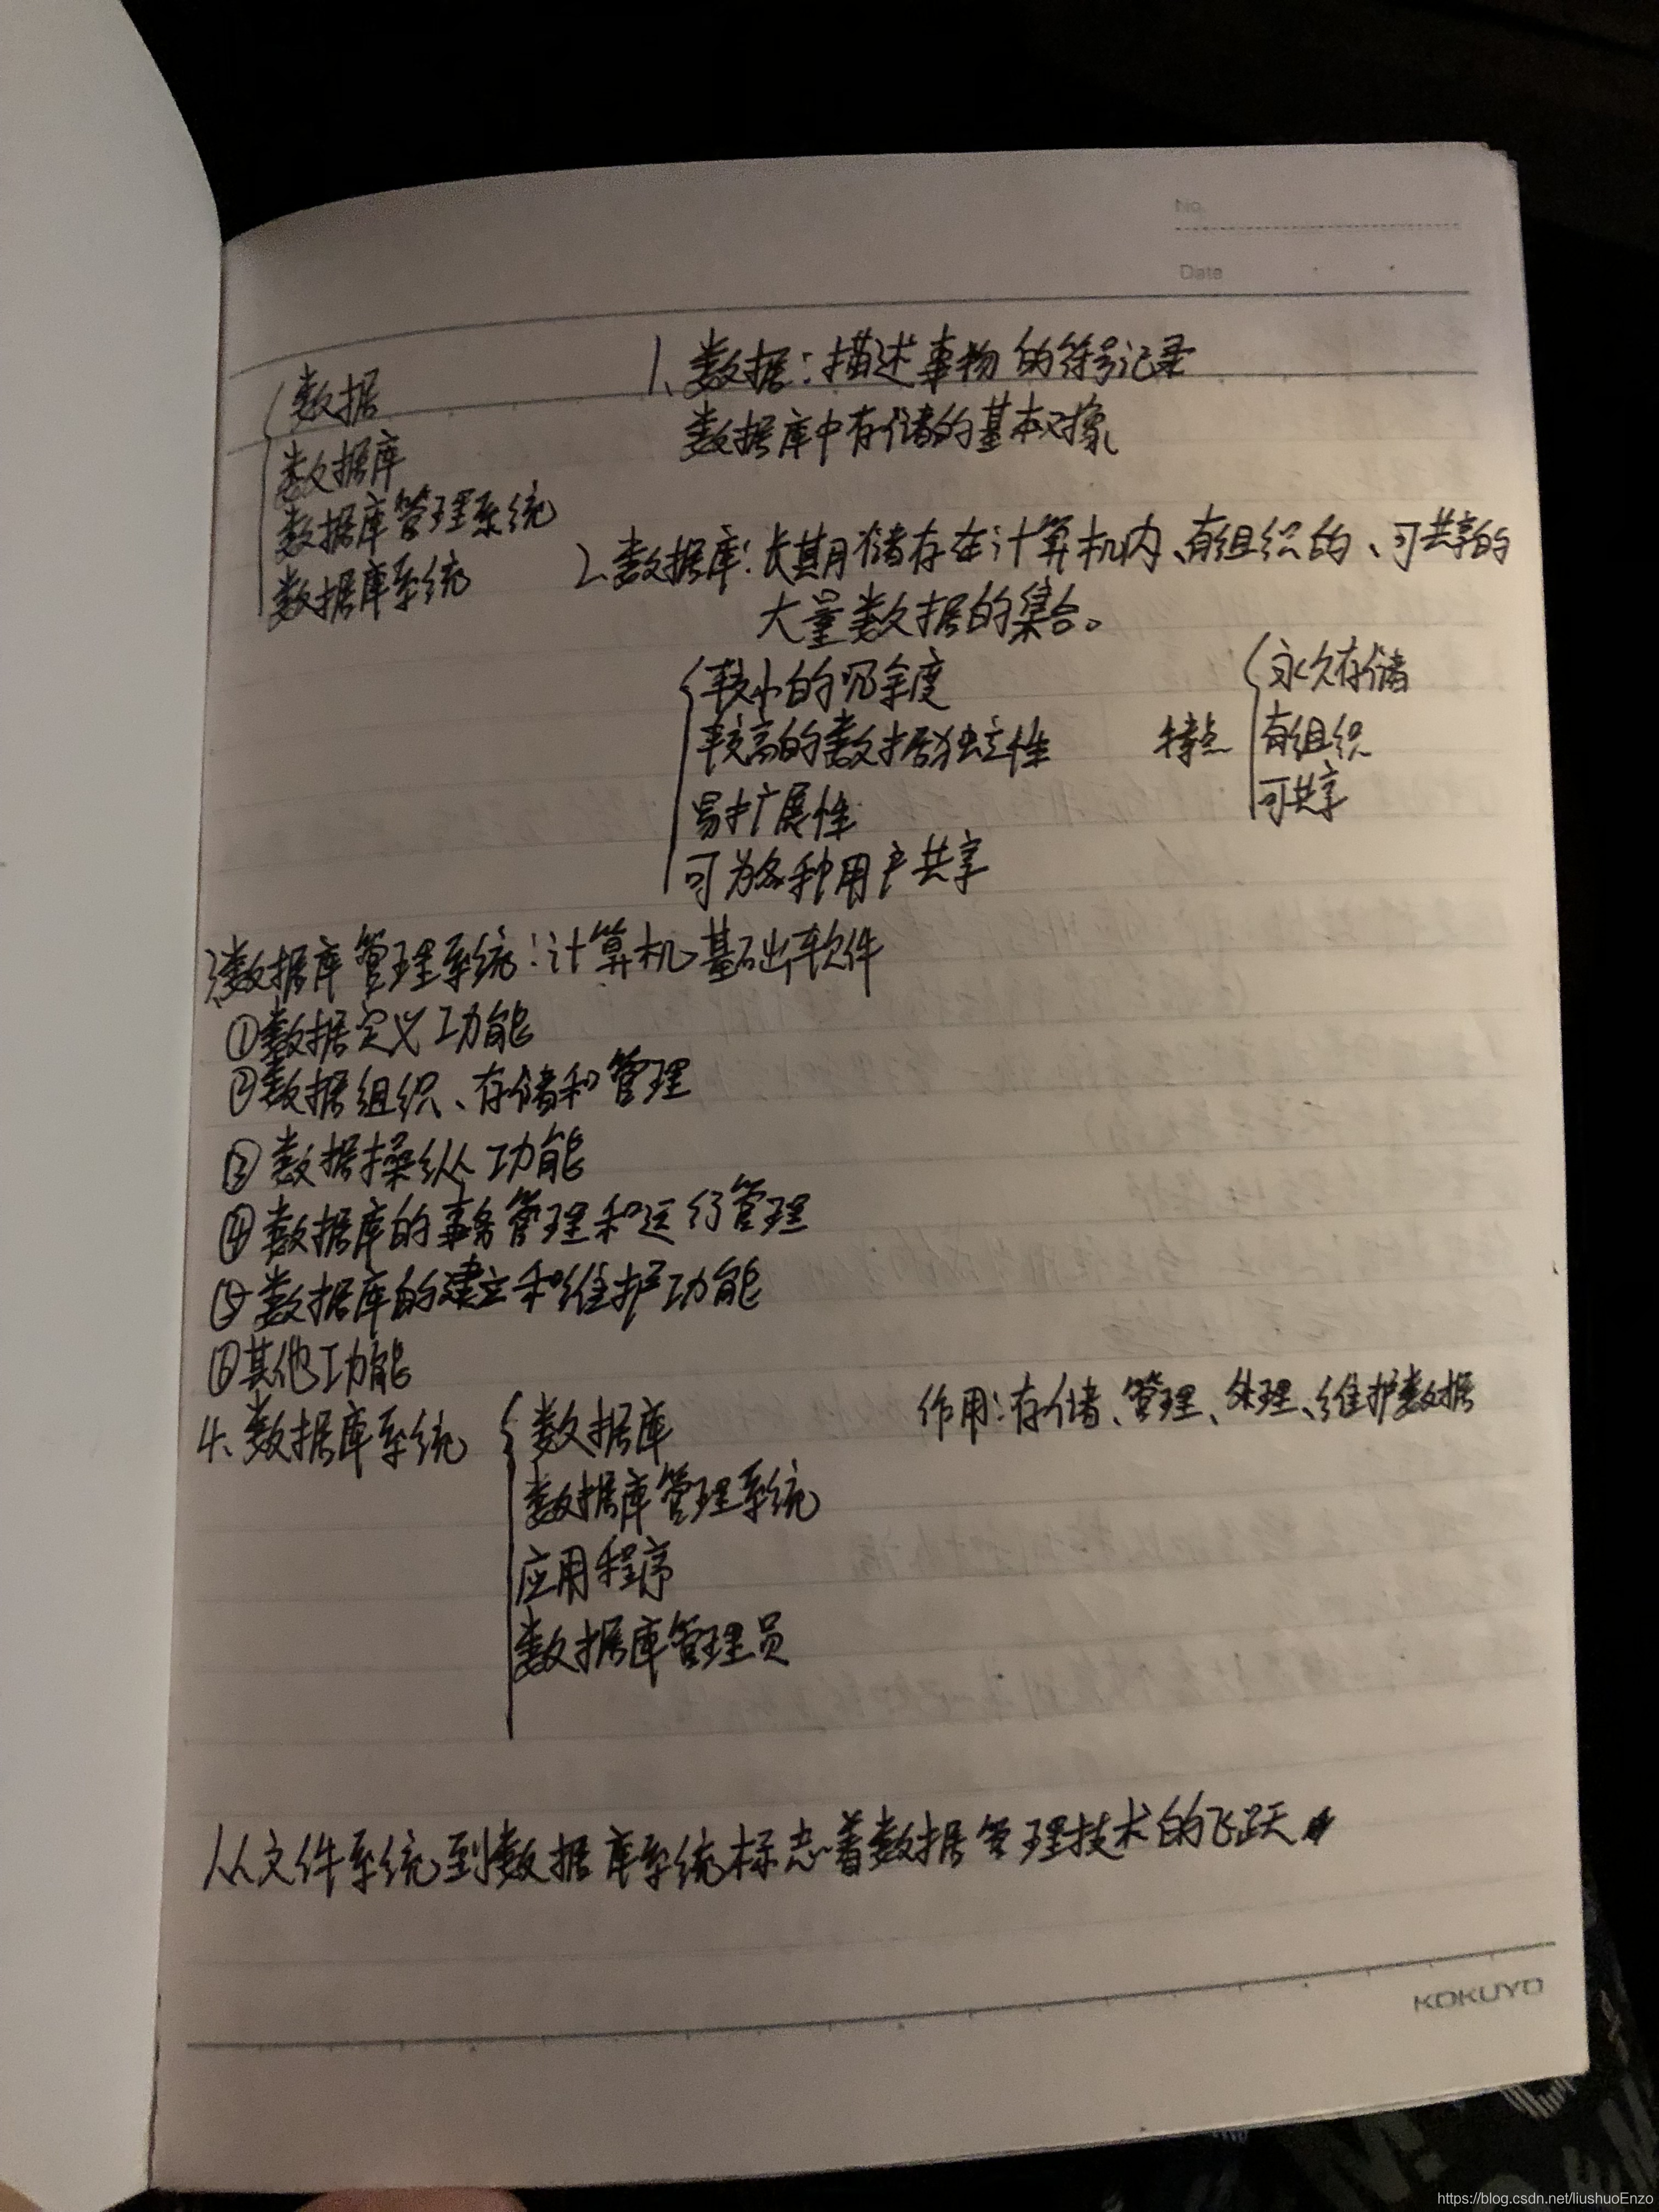 No.
Date
数据
数据库
数据库管理系统
数据库系统
1、数据：描述事物的符号记录
数据库中存储的基本对象
2、数据库：长期储存在计算机内、有组织的、可共享的
大量数据的集合。
较小的冗余度
较高的数据独立性
易扩展性
可为各种用户共享
特点
永久存储
有组织
可共享
3、数据库管理系统：计算机基础软件
①数据定义功能
②数据组织、存储和管理
③数据操纵功能
④数据库的事务管理和运行管理
⑤数据库的建立和维护功能
⑥其他功能
4、数据库系统
数据库
数据库管理系统
应用程序
数据库管理员
作用：存储、管理、处理、维护数据
从文件系统到数据库系统标志着数据管理技术的飞跃
KOKUYO
https://blog.csdn.net/liushuoEnzo